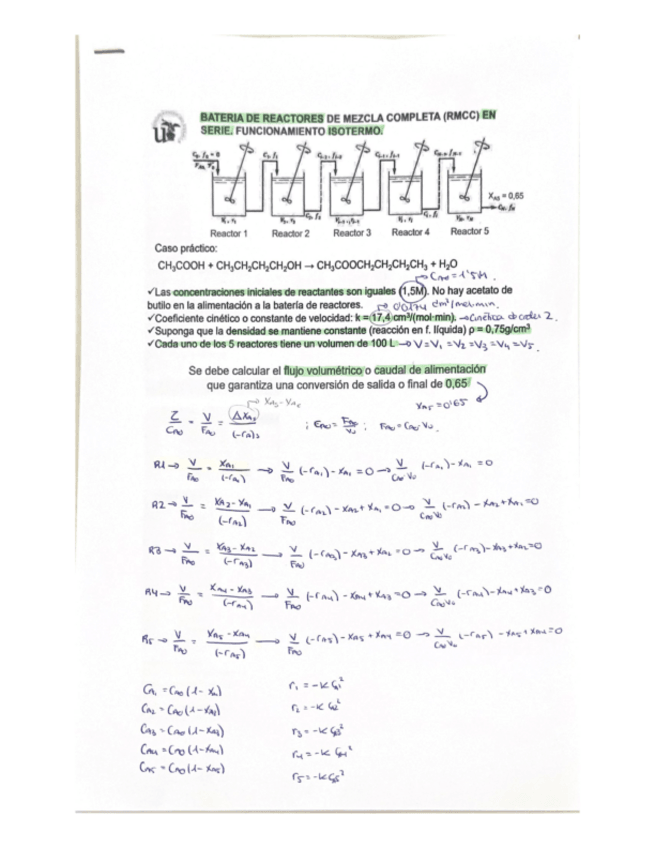 BATERIA DE REACTORES DE MEZCLA COMPLETA (RMCC) EN
SERIE. FUNCIONAMIENTO ISOTERMO.
X_A5 = 0,65
Reactor 1 Reactor 2 Reactor 3 Reactor 4 Reactor 5
Caso práctico:
CH₃COOH + CH₃CH₂CH₂CH₂OH → CH₃COOCH₂CH₂CH₂CH₃ + H₂O
→ C_A0 = 1'5M.
✓Las concentraciones iniciales de reactantes son iguales (1,5M). No hay acetato de
butilo en la alimentación a la batería de reactores.
✓Coeficiente cinético o constante de velocidad: k = 17,4 cm³/(mol·min). → Cinética de orden 2.
✓Suponga que la densidad se mantiene constante (reacción en f. líquida) ρ = 0,75g/cm³
✓Cada uno de los 5 reactores tiene un volumen de 100 L → V = V₁ = V₂ = V₃ = V₄ = V₅.
Se debe calcular el flujo volumétrico o caudal de alimentación
que garantiza una conversión de salida o final de 0,65
X_A5 = 0'65
R1 → V/F_A0 = X_A1/(-r_A1) → V/F_A0 (-r_A1) - X_A1 = 0 → V/C_A0 V₀ (-r_A1) - X_A1 = 0
R2 → V/F_A0 = X_A2 - X_A1/(-r_A2) → V/F_A0 (-r_A2) - X_A2 + X_A1 = 0 → V/C_A0 V₀ (-r_A2) - X_A2 + X_A1 = 0
R3 → V/F_A0 = X_A3 - X_A2/(-r_A3) → V/F_A0 (-r_A3) - X_A3 + X_A2 = 0 → V/C_A0 V₀ (-r_A3) - X_A3 + X_A2 = 0
R4 → V/F_A0 = X_A4 - X_A3/(-r_A4) → V/F_A0 (-r_A4) - X_A4 + X_A3 = 0 → V/C_A0 V₀ (-r_A4) - X_A4 + X_A3 = 0
R5 → V/F_A0 = X_A5 - X_A4/(-r_A5) → V/F_A0 (-r_A5) - X_A5 + X_A4 = 0 → V/C_A0 V₀ (-r_A5) - X_A5 + X_A4 = 0
C_A1 = C_A0 (1 - X_A1) r₁ = -k C_A1²
C_A2 = C_A0 (1 - X_A2) r₂ = -k C_A2²
C_A3 = C_A0 (1 - X_A3) r₃ = -k C_A3²
C_A4 = C_A0 (1 - X_A4) r₄ = -k C_A4²
C_A5 = C_A0 (1 - X_A5) r₅ = -k C_A5²